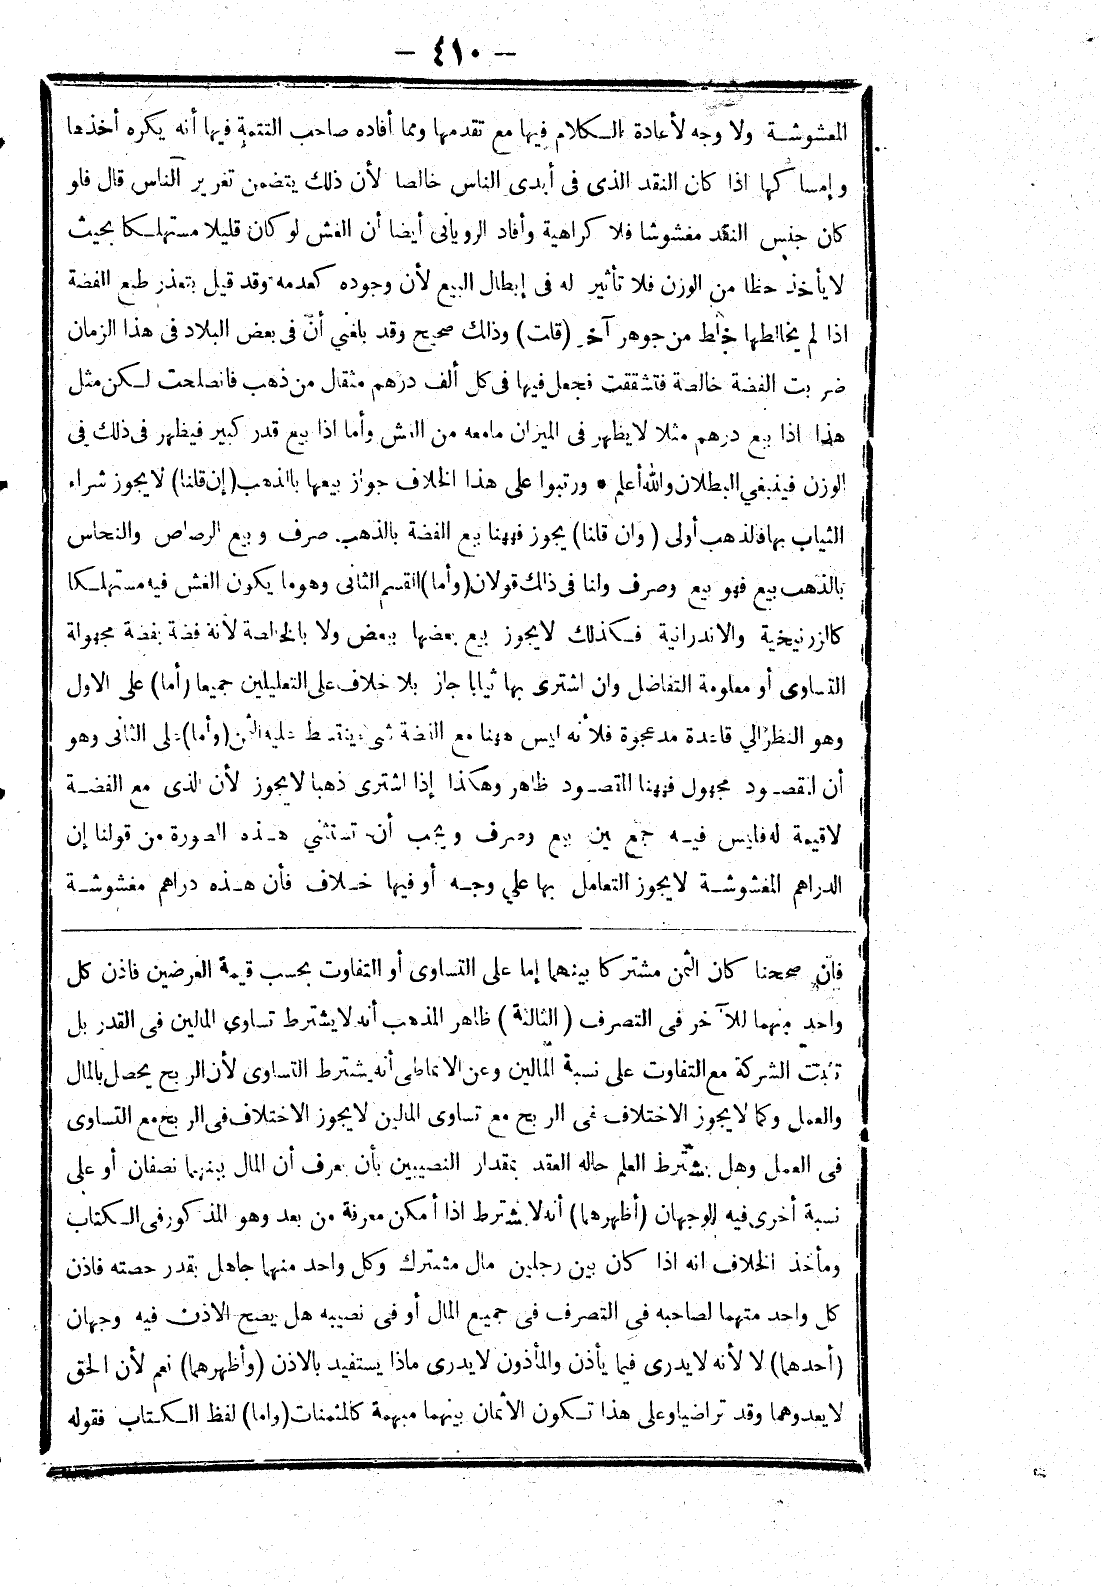 — ٤١٠ —
المغشوشة ولا وجه لأعادة الكلام فيها مع تقدمها ومما أفاده صاحب التتمة فيها أنه يكره أخذها
وإمساكها اذا كان النقد الذى فى أيدى الناس خالصا لأن ذلك يتضمن تغرير الناس قال فلو
كان جنس النقد مغشوشا فلا كراهية وأفاد الرويانى أيضا أن الغش لو كان قليلا مستهلكا بحيث
لا يأخذ حظا من الوزن فلا تأثير له فى إبطال البيع لأن وجوده كعدمه وقد قيل يتعذر طبع الفضة
اذا لم يخالطها خلط من جوهر آخر (قلت) وذلك صحيح وقد بلغنى أن فى بعض البلاد فى هذا الزمان
ضربت الفضة خالصة فتشققت فجعل فيها فى كل ألف درهم مثقال من ذهب فانصلحت لكن مثل
هذا اذا بيع درهم مثلا لا يظهر فى الميزان مامعه من الغش وأما اذا بيع قدر كبير فيظهر فى ذلك فى
الوزن فينبغي البطلان والله أعلم * ورتبوا على هذا الخلاف جواز بيعها بالذهب (إن قلنا) لا يجوز شراء
الثياب بها فالذهب أولى (وان قلنا) يجوز فههنا بيع الفضة بالذهب صرف وبيع الرصاص والنحاس
بالذهب بيع فهو بيع وصرف ولنا فى ذلك قولان (وأما) القسم الثانى وهو ما يكون الغش فيه مستهلكا
كالزرنيخية والاندرانية فكذلك لا يجوز بيع بعضها ببعض ولا بالخالصة لأنه فضة بفضة مجهولة
التساوى أو معلومة التفاضل وان اشترى بها ثيابا جاز بلا خلاف على التعليلين جميعا (أما) على الاول
وهو النظر الي قاعدة مد عجوة فلأنه ليس ههنا مع الفضة شىء يتقسط عليه الثمن (وأما) على الثانى وهو
أن المقصود مجهول فههنا المقصود ظاهر وهكذا إذا اشترى ذهبا لا يجوز لأن الذى مع الفضة
لا قيمة له فليس فيه جمع بين بيع وصرف ويجب أن تستثني هذه الصورة من قولنا إن
الدراهم المغشوشة لا يجوز التعامل بها علي وجه أو فيها خلاف فأن هذه دراهم مغشوشة
فان صححنا كان الثمن مشتركا بينهما إما على التساوى أو التفاوت بحسب قيمة العرضين فاذن كل
واحد منهما للآخر فى التصرف (الثالثة) ظاهر المذهب أنه لا يشترط تساوى المالين فى القدر بل
تثبت الشركة مع التفاوت على نسبة المالين وعن الانماطى أنه يشترط التساوى لأن الربح يحصل بالمال
والعمل وكما لا يجوز الاختلاف فى الربح مع تساوى المالين لا يجوز الاختلاف فى الربح مع التساوى
فى العمل وهل يشترط العلم حاله العقد بمقدار النصيبين بأن يعرف أن المال بينهما نصفان أو على
نسبة أخرى فيه الوجهان (أظهرهما) أنه لا يشترط اذا أمكن معرفة من بعد وهو المذكور فى الكتاب
ومأخذ الخلاف انه اذا كان بين رجلين مال مشترك وكل واحد منهما جاهل بقدر حصته فاذن
كل واحد متهما لصاحبه فى التصرف فى جميع المال أو فى نصيبه هل يصح الاذن فيه وجهان
(أحدهما) لا لأنه لا يدرى فيما يأذن والمأذون لا يدرى ماذا يستفيد بالاذن (وأظهرهما) نعم لأن الحق
لا يعدوهما وقد تراضيا وعلى هذا تكون الأثمان بينهما مبهمة كالمثمنات (واما) لفظ الكتاب فقوله